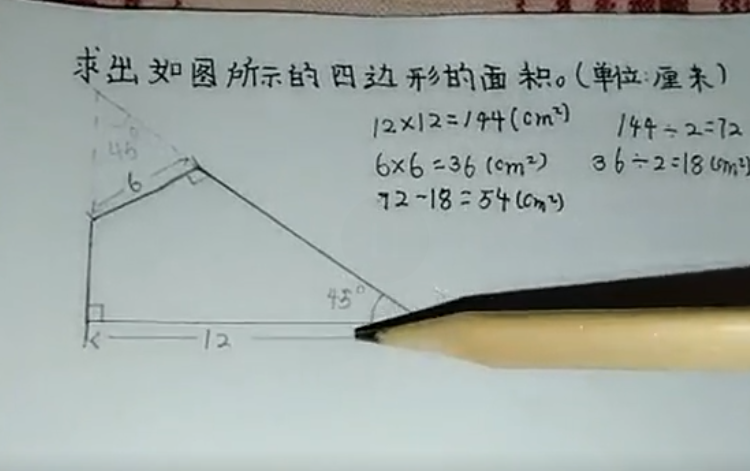 求出如图所示的四边形的面积。(单位:厘米)
12×12=144(cm²) 144÷2=72
6×6=36(cm²) 36÷2=18(cm²)
72-18=54(cm²)
45°
6
45°
12